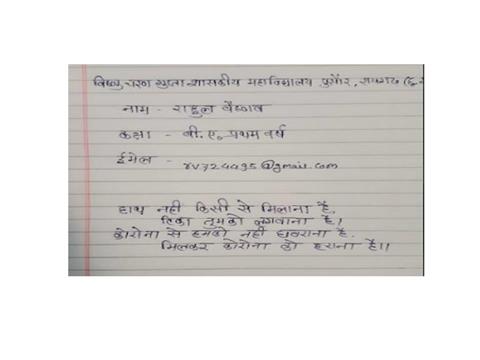 विष्णु चरण गुप्ता शासकीय महाविद्यालय पुसौर, रायगढ़ (छ.
नाम - राहुल वैष्णव
कक्षा - बी.ए. प्रथम वर्ष
ईमेल - rv724495@gmail.com
हाथ नही किसी से मिलाना है,
टिका तुमको लगवाना है।
कोरोना से हमको नही घबराना है.
मिलकर कोरोना को हराना है।।